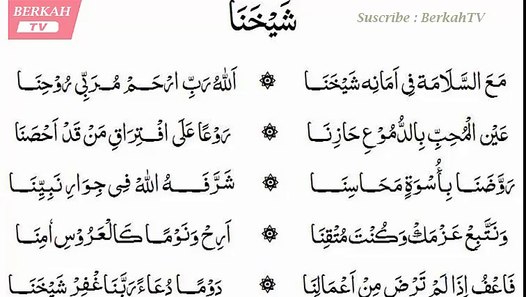 BERKAH
TV
Suscribe : BerkahTV
شَيْخَنَا
مَعَ السَّلَامَة فِي اَمَانِه شَيْخَنَـا ۞ اَللهُ رَبِّ ارْحَمْ مُـرَبِّي رُوْحِنَـا
عَيْن الْمُحِبّ بِالدُّمُوْعِ حَازِنَا ۞ رَوْعًا عَلَى افْتِرَاقِ مَنْ قَدْ اَحْصَنَا
رَوَّضَنَا بِأُسْوَةٍ مَحَاسِنَـا ۞ شَرَّفَـهُ اللهُ فِـي جِوَارِ نَبِيِّنَا
وَنَتَّبِع عَزْمَكْ وَكُنْتَ مُتْقِنَا ۞ اَرِحْ وَنَوْمًـا كَالْعَرُوْسِ اٰمِنَا
فَاعْفُ اِذَا لَمْ تَرْضَ مِنْ اَعْمَالِنَا ۞ دَوْمًـا دُعَاءً رَبَّنَا غْفِرْ شَيْخَنَـا